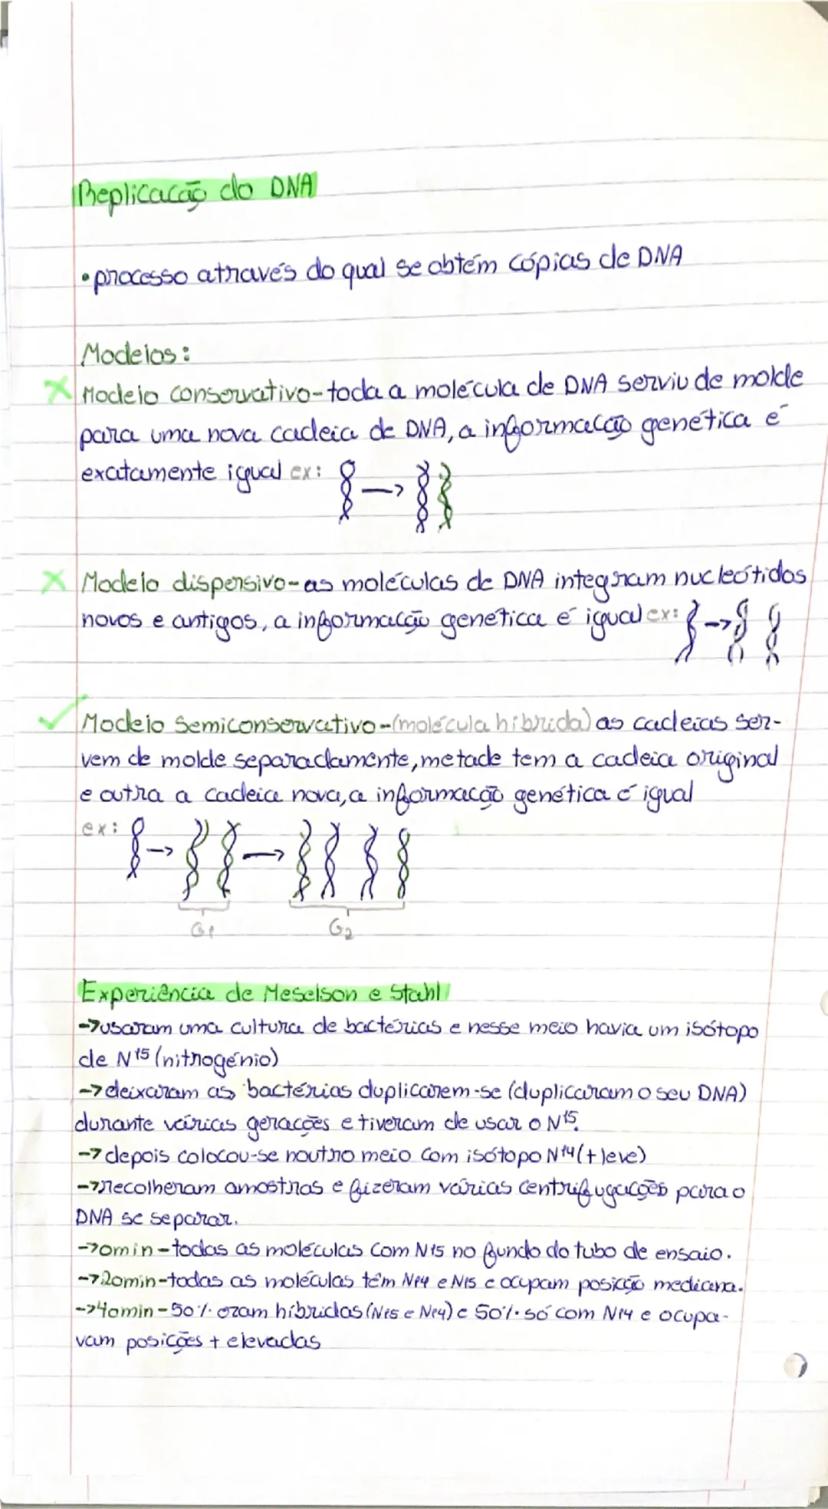 Replicação do DNA
• processo através do qual se obtém cópias de DNA
Modelos:
Modelo conservativo-toda a molécula de DNA serviu de molde
para uma nova cadeia de DNA, a informação genética é
exatamente igual ex:
Modelo dispersivo-as moléculas de DNA integram nucleótidos
novos e antigos, a informação genética é igual ex:
Modelo semiconservativo-(molécula híbrida) as cadeias ser-
vem de molde separadamente, metade tem a cadeia original
e outra a cadeia nova, a informação genética é igual
ex:
G1 G2
Experiência de Meselson e Stahl
→usaram uma cultura de bactérias e nesse meio havia um isótopo
de N15 (nitrogénio)
→deixaram as bactérias duplicarem-se (duplicaram o seu DNA)
durante várias gerações e tiveram de usar o N15.
→depois colocou-se noutro meio com isótopo N14 (+leve)
→recolheram amostras e fizeram várias centrifugações para o
DNA se separar.
→0min-todas as moléculas com N15 no fundo do tubo de ensaio.
→20min-todas as moléculas têm N14 e N15 e ocupam posição mediana.
→40min-50% eram híbridas (N15 e N14) e 50% só com N14 e ocupa-
vam posições + elevadas